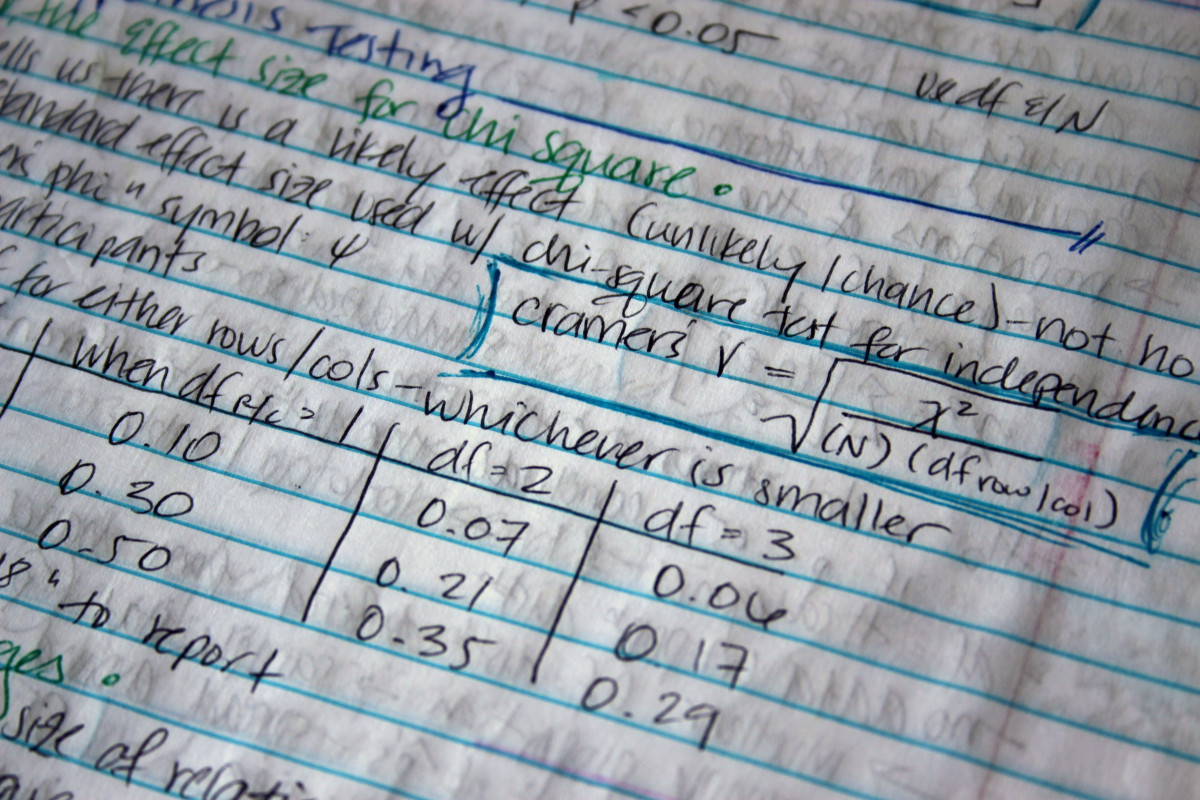 p < 0.05
Testing
use df & N
the effect size for chi square.
us there is a likely effect (unlikely / chance) - not
standard effect size used w/ chi-square test for independence
phi" symbol: φ
participants
cramers V = √ χ² / (N) (df row/col)
for either rows/cols - whichever is smaller
when df R/C = 1 | df = 2 | df = 3
0.10 | 0.07 | 0.06
0.30 | 0.21 | 0.17
0.50 | 0.35 | 0.29
" to report
size of